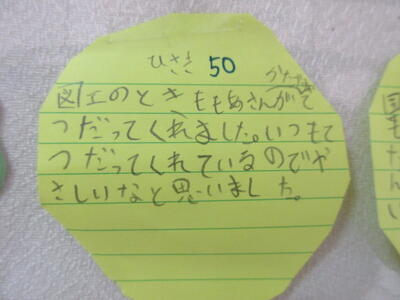 ひさき 50
図工のときももあさんがて
つだってくれました。いつもて
つだってくれているのでや
さしいなと思いました。